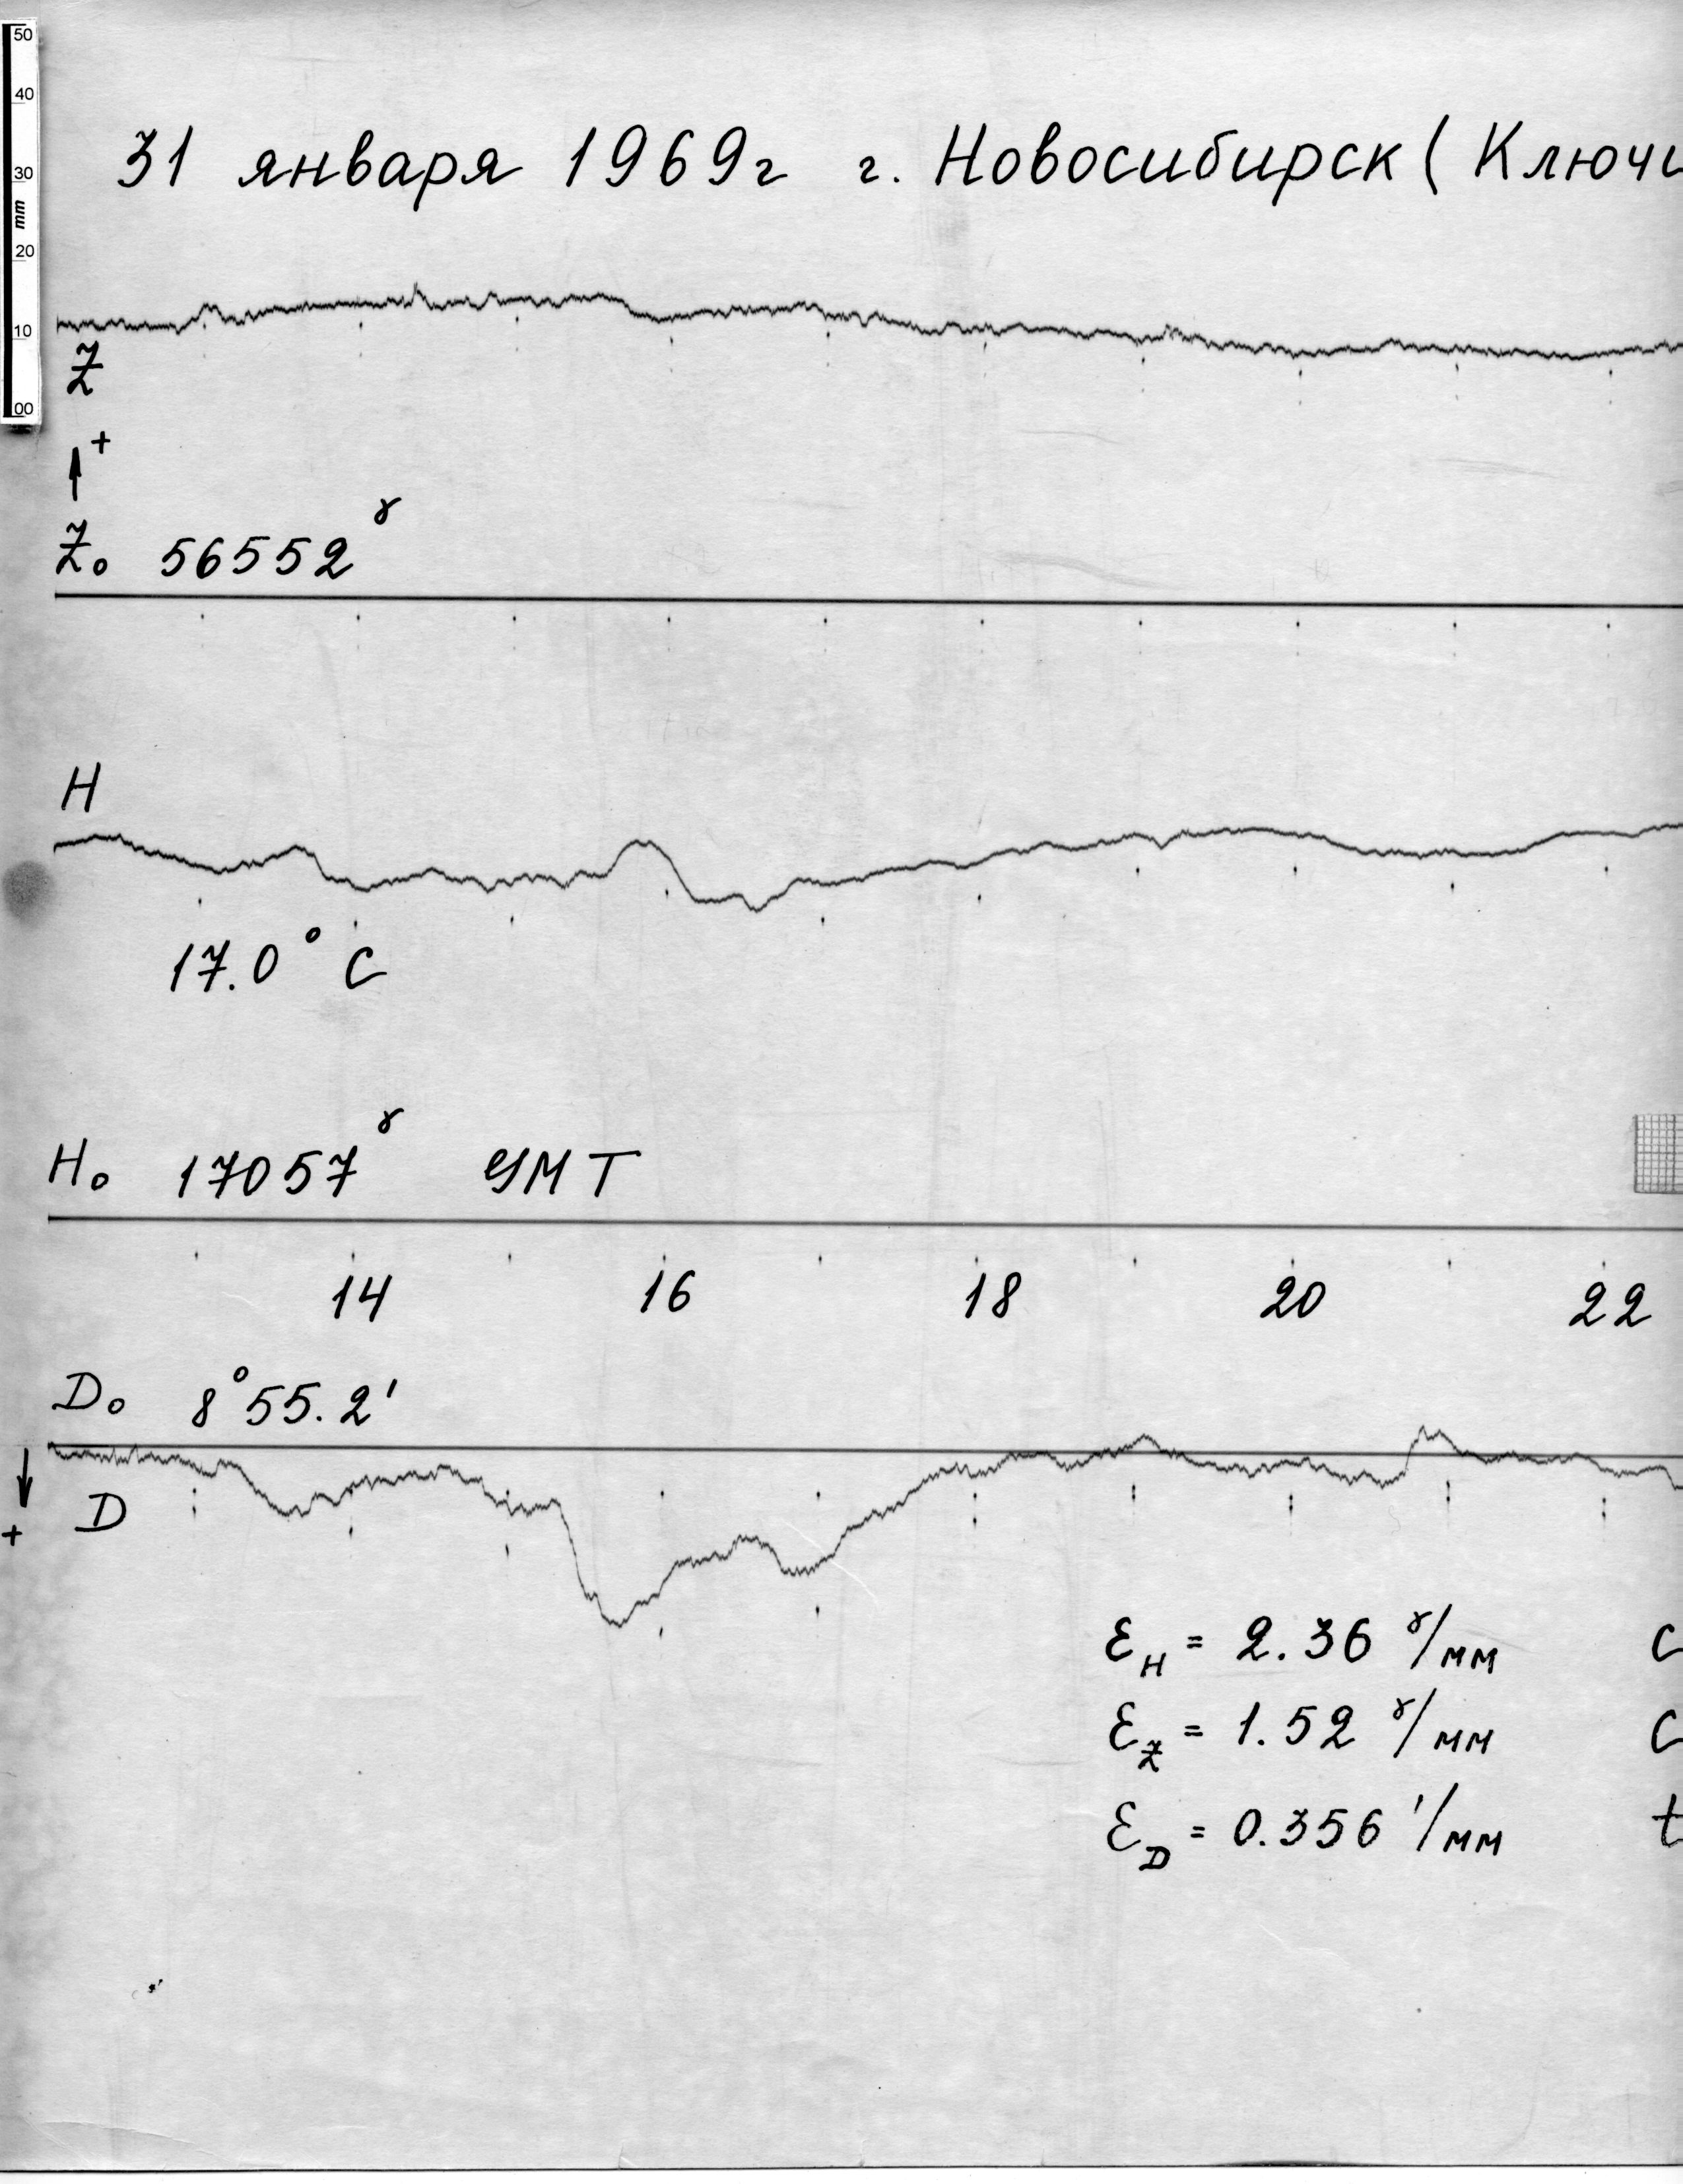 50
40
30
mm
20
10
00
31 января 1969г г. Новосибирск (Ключи
Z
+
Z₀ 56552ᵞ
H
17.0° C
H₀ 17057ᵞ УМТ
14 16 18 20 22
D₀ 8°55.2'
D
+
ε_H = 2.36 ᵞ/мм С
ε_Z = 1.52 ᵞ/мм С
ε_D = 0.356 '/мм t